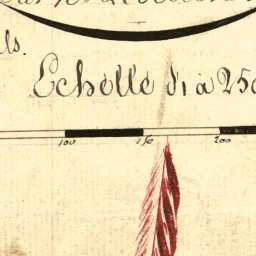 ls.
Echelle d'1 à 250
100 150 200